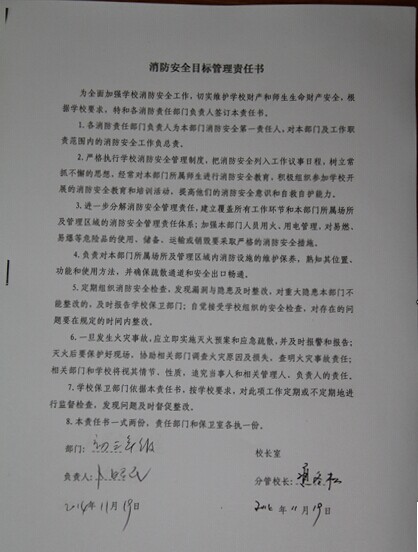 消防安全目标管理责任书
为全面加强学校消防安全工作，切实维护学校财产和师生生命财产安全，根
据学校要求，特和各消防责任部门负责人签订本责任书。
1.各消防责任部门负责人为本部门消防安全第一责任人，对本部门及工作职
责范围内的消防安全工作负总责。
2.严格执行学校消防安全管理制度，把消防安全列入工作议事日程，树立常
抓不懈的思想，经常对本部门所属师生进行消防安全教育，积极组织参加学校开
展的消防安全教育和培训活动，提高他们的消防安全意识和自救自护能力。
3.进一步分解消防安全管理责任，建立覆盖所有工作环节和本部门所属场所
及管理区域的消防安全管理责任体系；加强本部门人员用火、用电管理，对易燃、
易爆等危险品的使用、储备、运输或销毁要采取严格的消防安全措施。
4.负责对本部门所属场所及管理区域内消防设施的维护保养，熟知其位置、
功能和使用方法，并确保疏散通道和安全出口畅通。
5.定期组织消防安全检查，发现漏洞与隐患及时整改，对重大隐患本部门不
能整改的，及时报告学校保卫部门；自觉接受学校组织的安全检查，对存在的问
题要在规定的时间内整改。
6.一旦发生火灾事故，应立即实施灭火预案和应急疏散，并及时报警和报告；
灭火后要保护好现场，协助相关部门调查火灾原因及损失，查明火灾事故责任；
相关部门和学校将视其情节、性质，追究当事人和相关管理人、负责人的责任。
7.学校保卫部门依据本责任书，按学校要求，对此项工作定期或不定期地进
行监督检查，发现问题及时督促整改。
8.本责任书一式两份，责任部门和保卫室各执一份。
部门：初三年级
校长室
负责人：
分管校长：
2014年11月19日
2014年11月19日